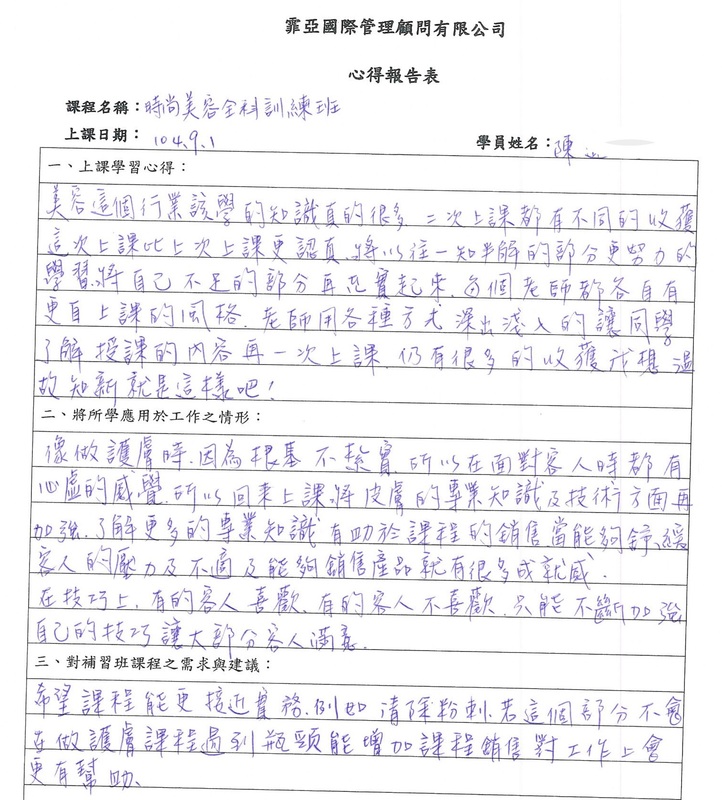 霏亞國際管理顧問有限公司
心得報告表
課程名稱：時尚美容全科訓練班
上課日期：104.9.1
學員姓名：陳
一、上課學習心得：
美容這個行業該學的知識真的很多，二次上課都有不同的收穫
這次上課比上次上課更認真、將以往一知半解的部分更努力的
學習、將自己不足的部分再充實起來，每個老師都各自有
更自上課的風格，老師用各種方式深出淺入的讓同學
了解授課的內容再一次上課，仍有很多的收獲我想溫
故知新就是這樣吧！
二、將所學應用於工作之情形：
像做護膚時，因為根基不紮實，所以在面對客人時都有
心虛的感覺，所以回來上課，將皮膚的專業知識及技術方面再
加強，了解更多的專業知識有助於課程的銷售當能夠舒緩
客人的壓力及不適及能夠銷售產品就有很多成就感．
在技巧上，有的客人喜歡，有的客人不喜歡，只能不斷加強
自己的技巧讓大部分客人滿意．
三、對補習班課程之需求與建議：
希望課程能更接近實務，例如清除粉刺，若這個部分不會
在做護膚課程遇到瓶頸能增加課程銷售對工作上會
更有幫助、